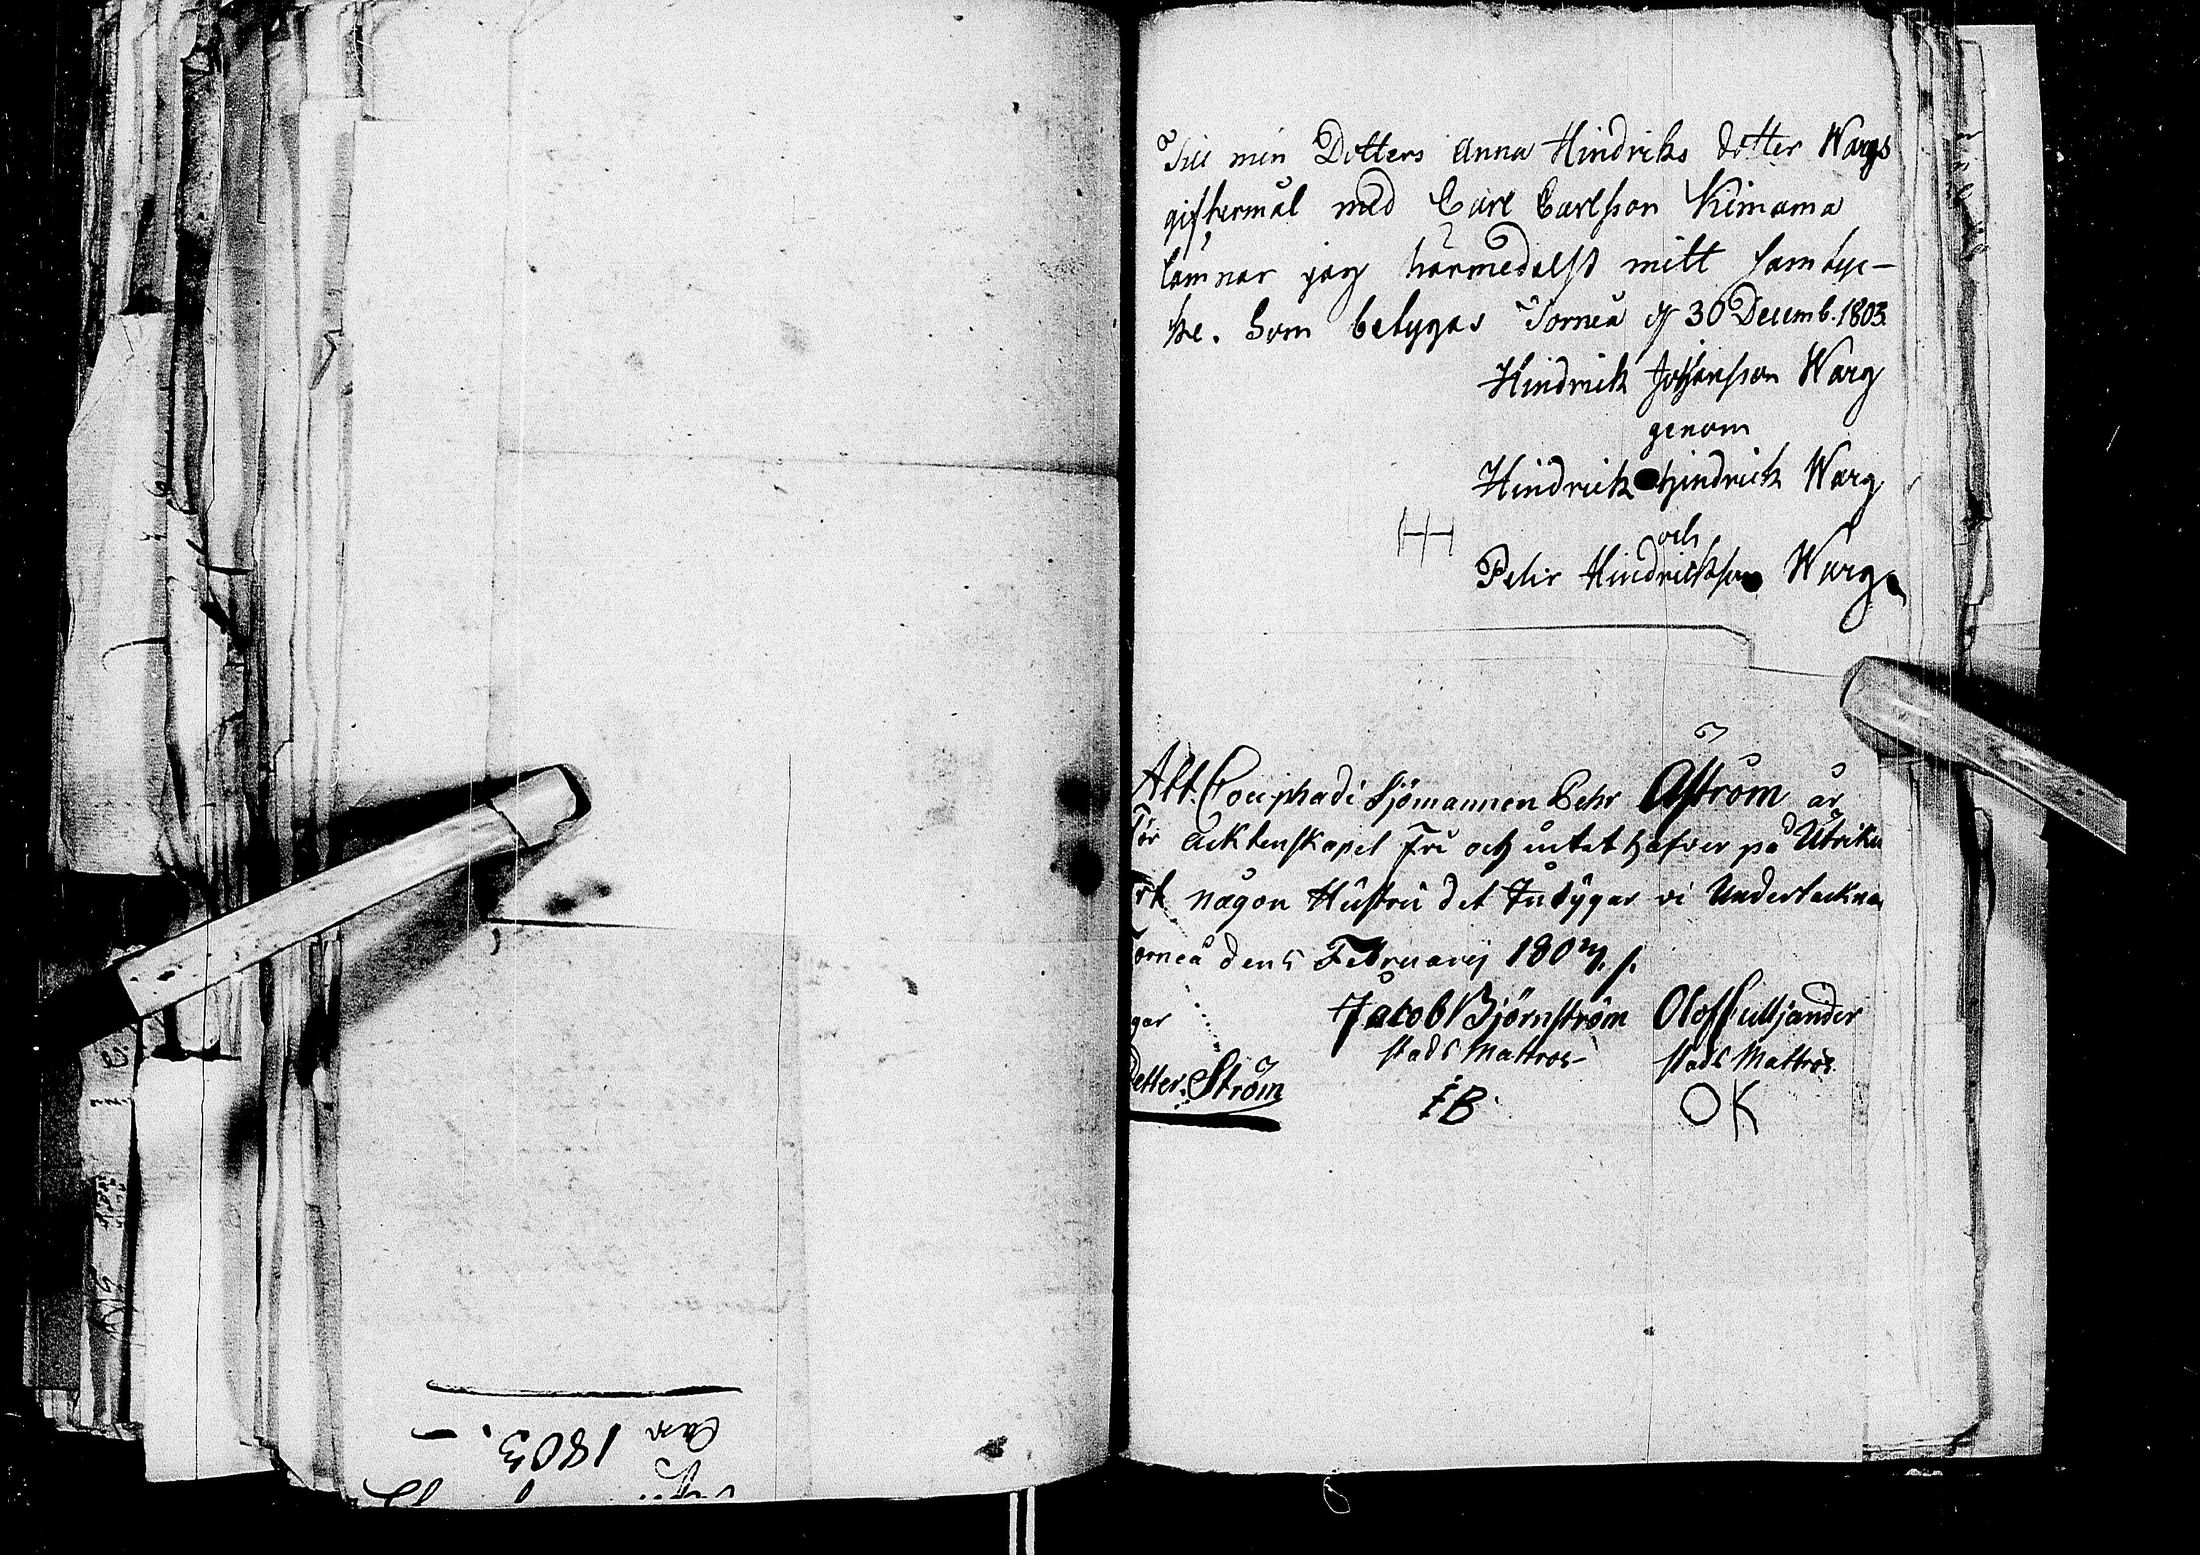 Till min Dotters Anna Hindriks dotter Wargs
giftermål med Carl Carlsson Kimama
lämnar jag härmedelst mitt samtyc-
ke. Som betygas Torneå d 30 Decemb. 1803.
Hindrick Johansson Warg
genom
Hindrick Hindrick Warg
och
Petir Hindricksson Warg
Att Sjömannen Pehr Åström är
För äcktenskapet Fri och intet hafver på Utrikes
någon Hustru det Intÿgar vi Undertackna
Torneå den 5 Februarij 180
Jacob Björnström Olof
stads Mattros stads Mattros
gar
Petter Ström
IB OK
1803.